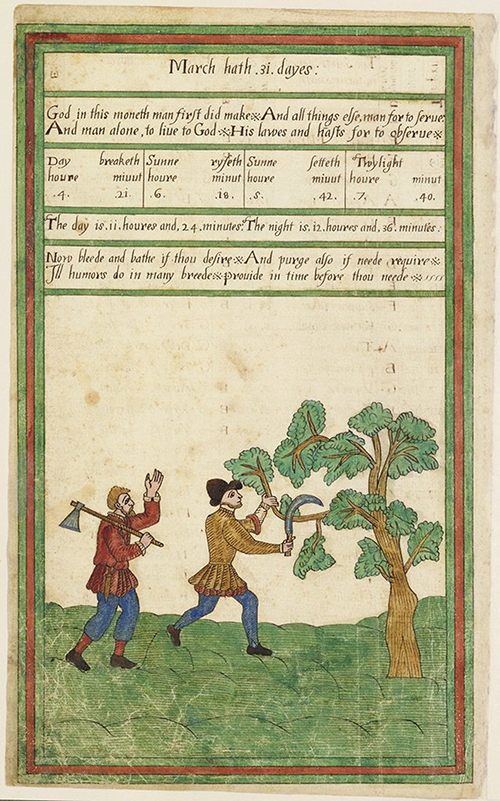 March hath .31. dayes:
God in this moneth man first did make※And all things else, man for to serue.
And man alone, to liue to God※His lawes and hests for to obserue※
Day breaketh Sunne ryseth Sunne setteth Twylight
houre minut houre minut houre minut houre minut
.4. 21. .6. .18. .5. 42. .7. .40.
The day is .11. houres and, 24. minutes: The night is .12. houres and, 36. minutes:
Now bleede and bathe if thou desire※And purge also if neede require※
Ill humors do in many breede※prouide in time before thou neede※